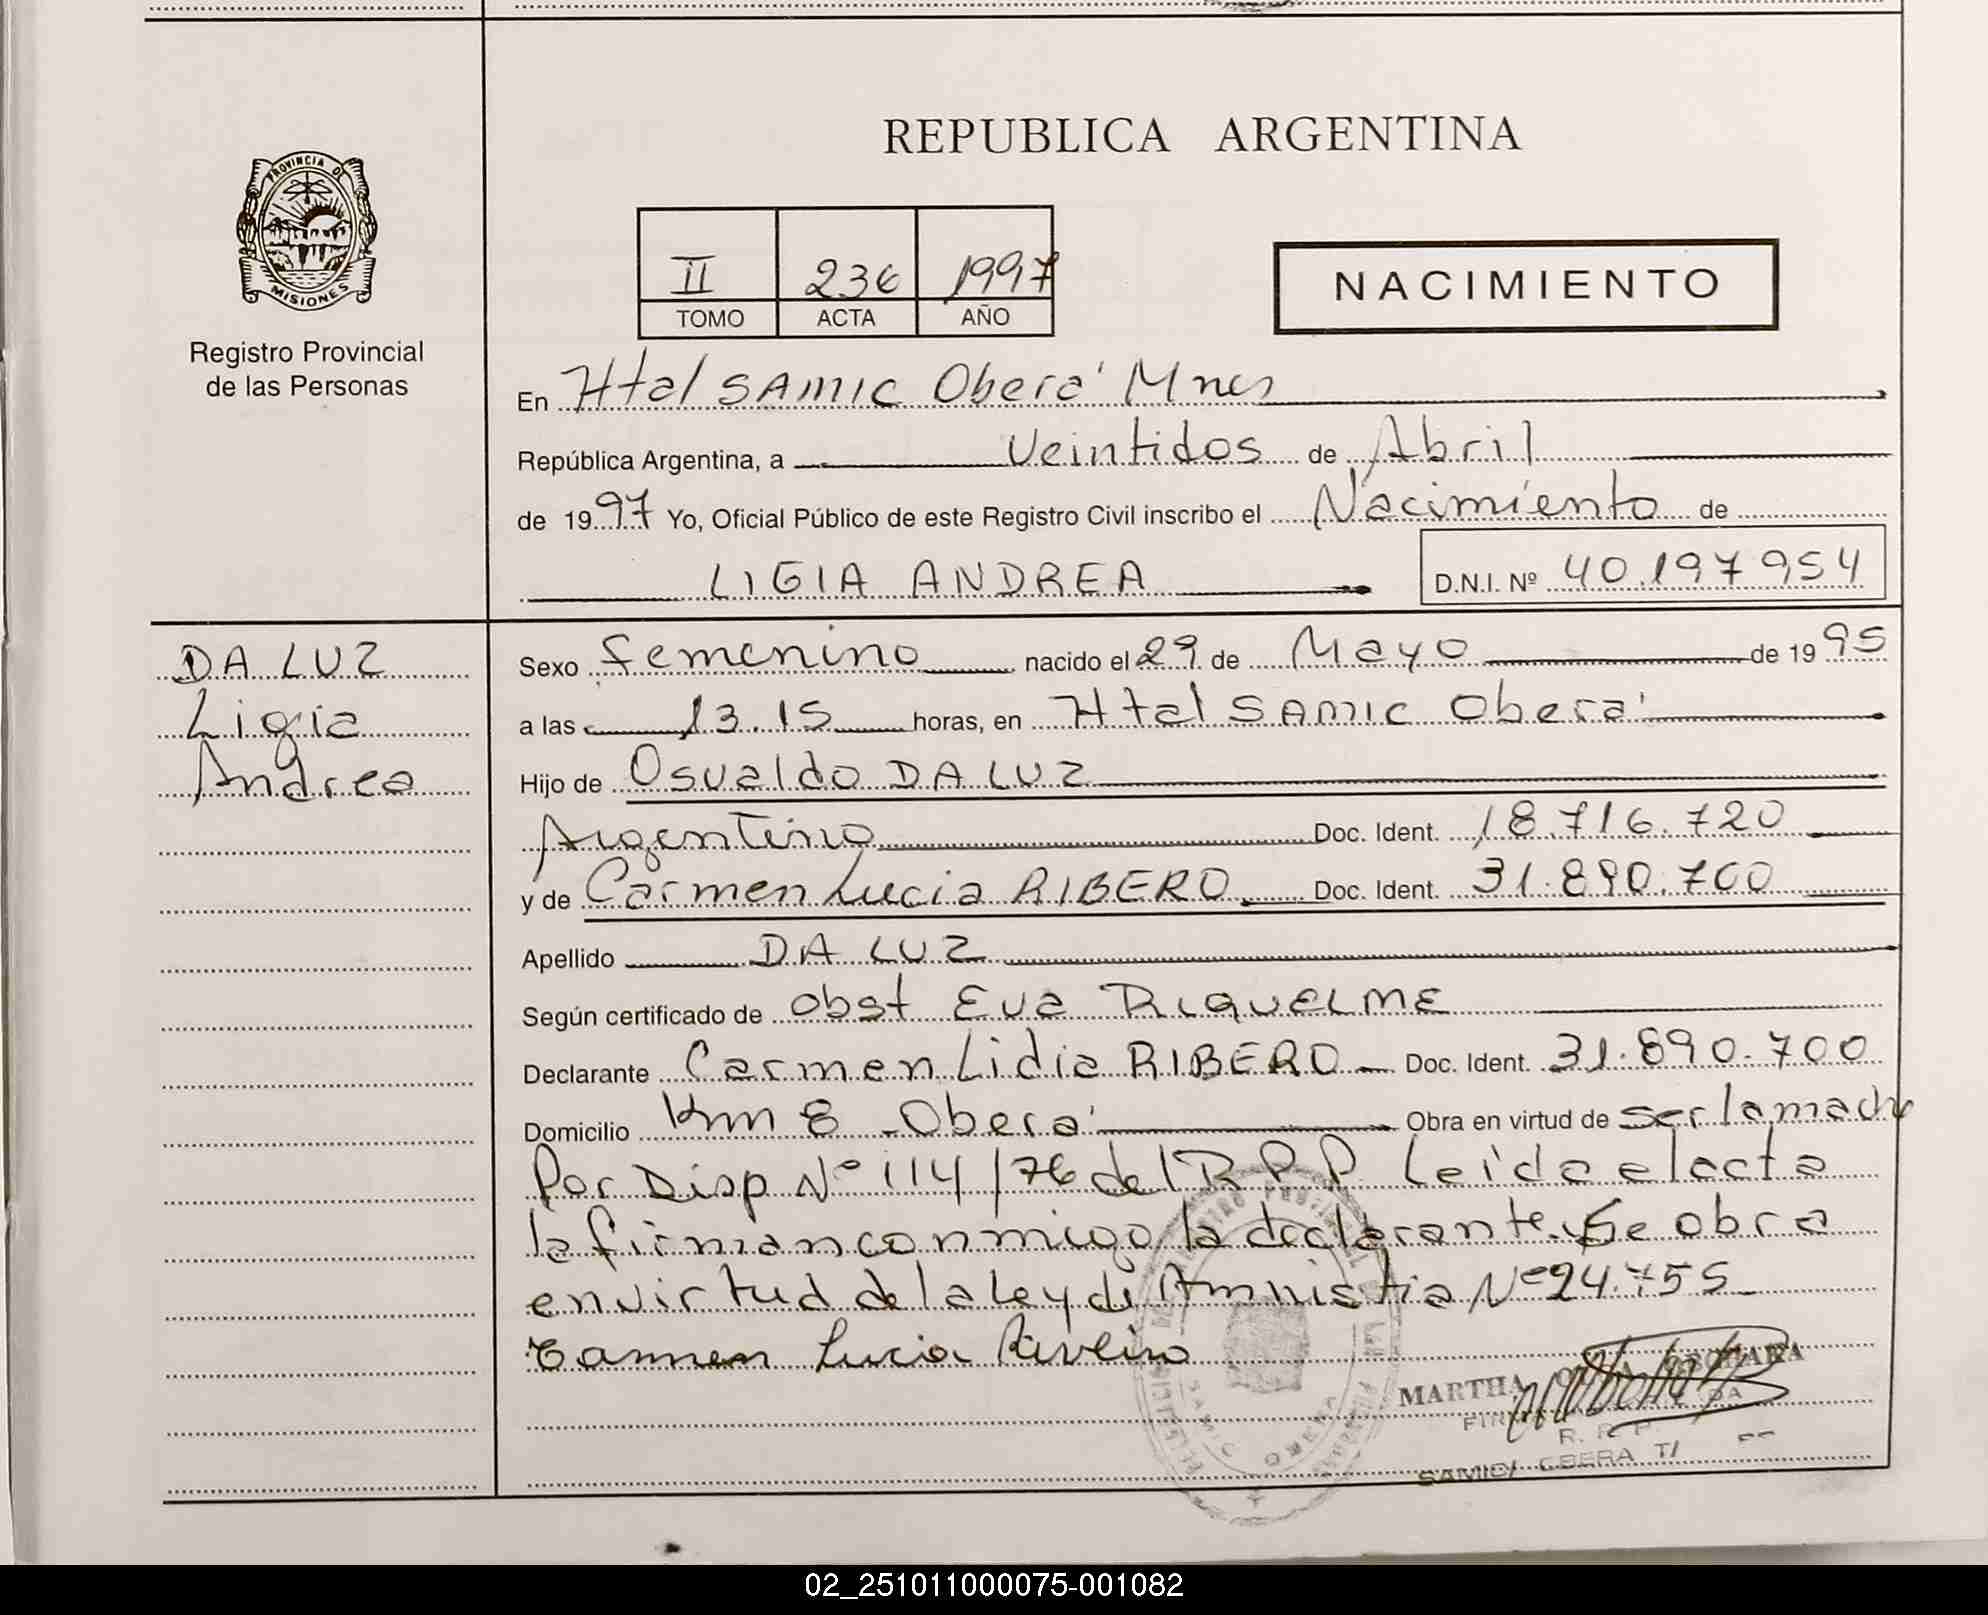 REPUBLICA ARGENTINA
PROVINCIA DE
MISIONES
Registro Provincial
de las Personas
II 236 1997
TOMO ACTA AÑO
NACIMIENTO
En Htal SAMIC Oberá Mnes
República Argentina, a Veintidos de Abril
de 1997 Yo, Oficial Público de este Registro Civil inscribo el Nacimiento de
LIGIA ANDREA D.N.I. Nº 40.197954
DA LUZ
Ligia
Andrea
Sexo femenino nacido el 29 de Mayo de 1995
a las 13.15 horas, en Htal SAMIC Oberá
Hijo de Osvaldo DA LUZ
Argentino Doc. Ident. 18.716.720
y de Carmen Lucia RIBERO Doc. Ident. 31.890.700
Apellido DA LUZ
Según certificado de obst Eva RIQUELME
Declarante Carmen Lidia RIBERO Doc. Ident. 31.890.700
Domicilio Km 8 - Oberá Obra en virtud de ser la madre
Por Disp Nº 114/76 del R P P Leida el acta
la firman conmigo la declarante. Se obra
en virtud de la Ley de Amnistia Nº 24.755
Carmen Lucia Riveiro
MARTHA
R. P. P.
SAMIC OBERA
02_251011000075-001082